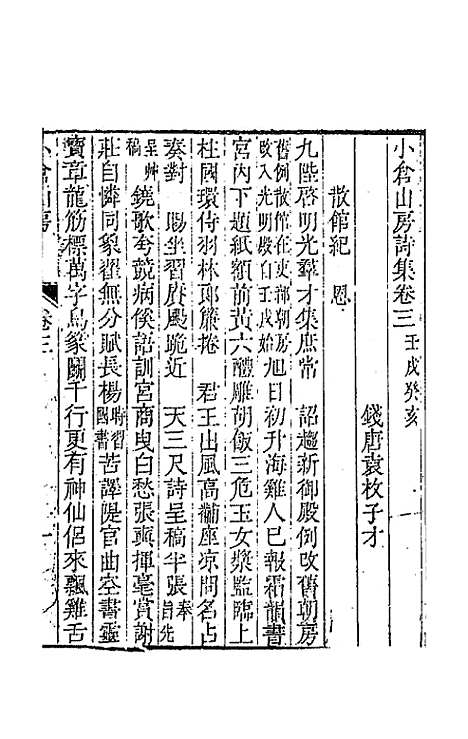 小倉山房詩集卷三 壬戌癸亥
錢唐袁枚子才
散館紀 恩
九陛啓明光羣才集庶常 詔趨新御殿例改舊朝房
舊例散館在吏部朝房
改入光明殿自壬戌始 旭日初升海雞人已報霜韻書
宮內下題紙額前黃六醴雕胡飯三危玉女漿監臨上
柱國環侍羽林郎簾捲 君王出風高黼座凉問名占
奏對 賜坐習賡颺跪近 天三尺詩呈稿半張 奉旨先
呈艸稿 鐃歌夸競病俟語訓宮商曳白愁張奭揮毫賞謝
莊自憐同象翟無分賦長楊 時習國書 苦譯鞮官曲空書靈
寶章龍筋標萬字鳥篆鬭千行更有神仙侶來飄雞舌
小倉山房 卷三 一